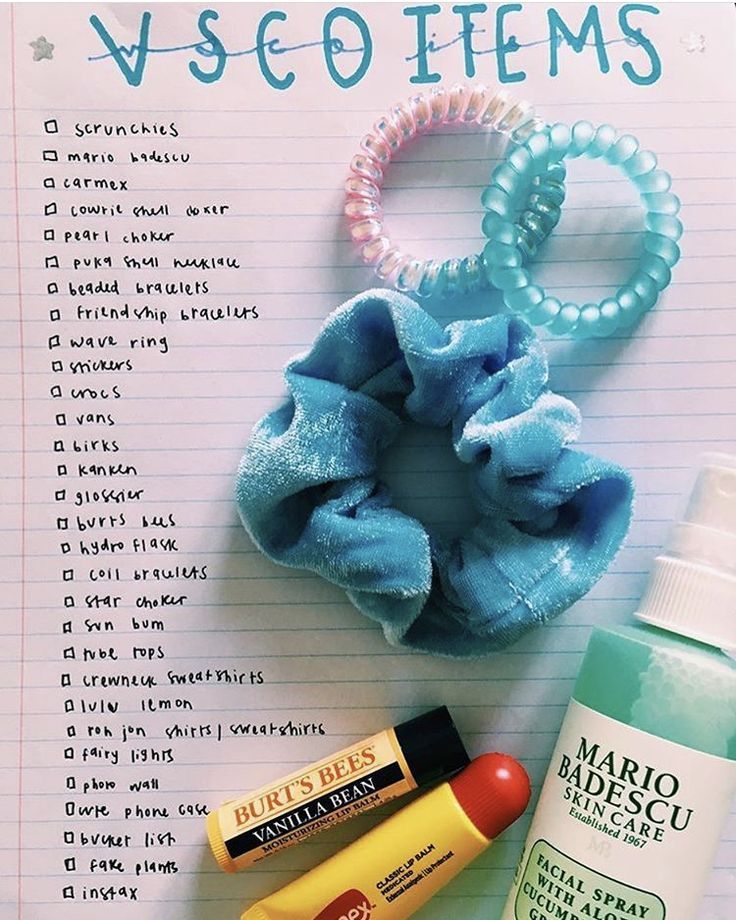 VSCO ITEMS
vsco items
scrunchies
mario badescu
carmex
cowrie shell choker
pearl choker
puka shell necklace
beaded bracelets
friendship bracelets
wave ring
stickers
crocs
vans
birks
kanken
glossier
burts bees
hydro flask
coil bracelets
star choker
sun bum
tube tops
crewneck sweatshirts
lulu lemon
ron jon shirts/sweatshirts
fairy lights
photo wall
cute phone case
bucket list
fake plants
instax
BURT'S BEES
VANILLA BEAN
MOISTURIZING LIP BALM
CLASSIC LIP BALM
MEDICATED
External Analgesic / Lip Protectant
MARIO
BADESCU
SKIN CARE
Established 1967
FACIAL SPRAY
WITH ALOE
CUCUMB